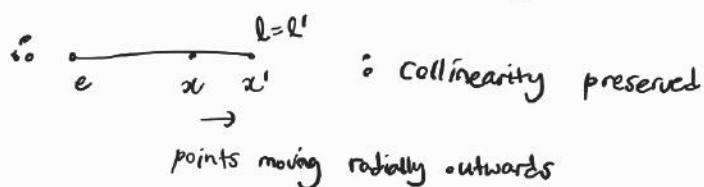 l = l'
e x x'
∴ collinearity preserved
→
points moving radially outwards